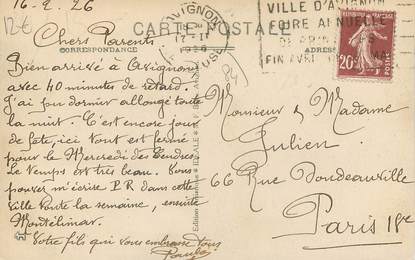 16-2.26
12€
Chers Parents
Bien arrivé à Avignon
avec 40 minutes de retard.
J'ai pu dormir allongé toute
la nuit. C'est encore jour
de fête, ici tout est fermé
pour le Mercredi des Cendres
Le temps est très beau. Vous
pouvez m'écrire P.R dans cette
ville toute la semaine, ensuite
Montélimar.
Votre fils qui vous embrasse tous
CARTE POSTALE
CORRESPONDANCE
ADRES
AVIGNON
17-II
1926
VAUCLUSE
VILLE D'AVIGNON
FOIRE ANNUELLE
FIN AVRIL
20c
(84)
Monsieur & Madame
Julien
66 Rue Doudeauville
Paris 18e